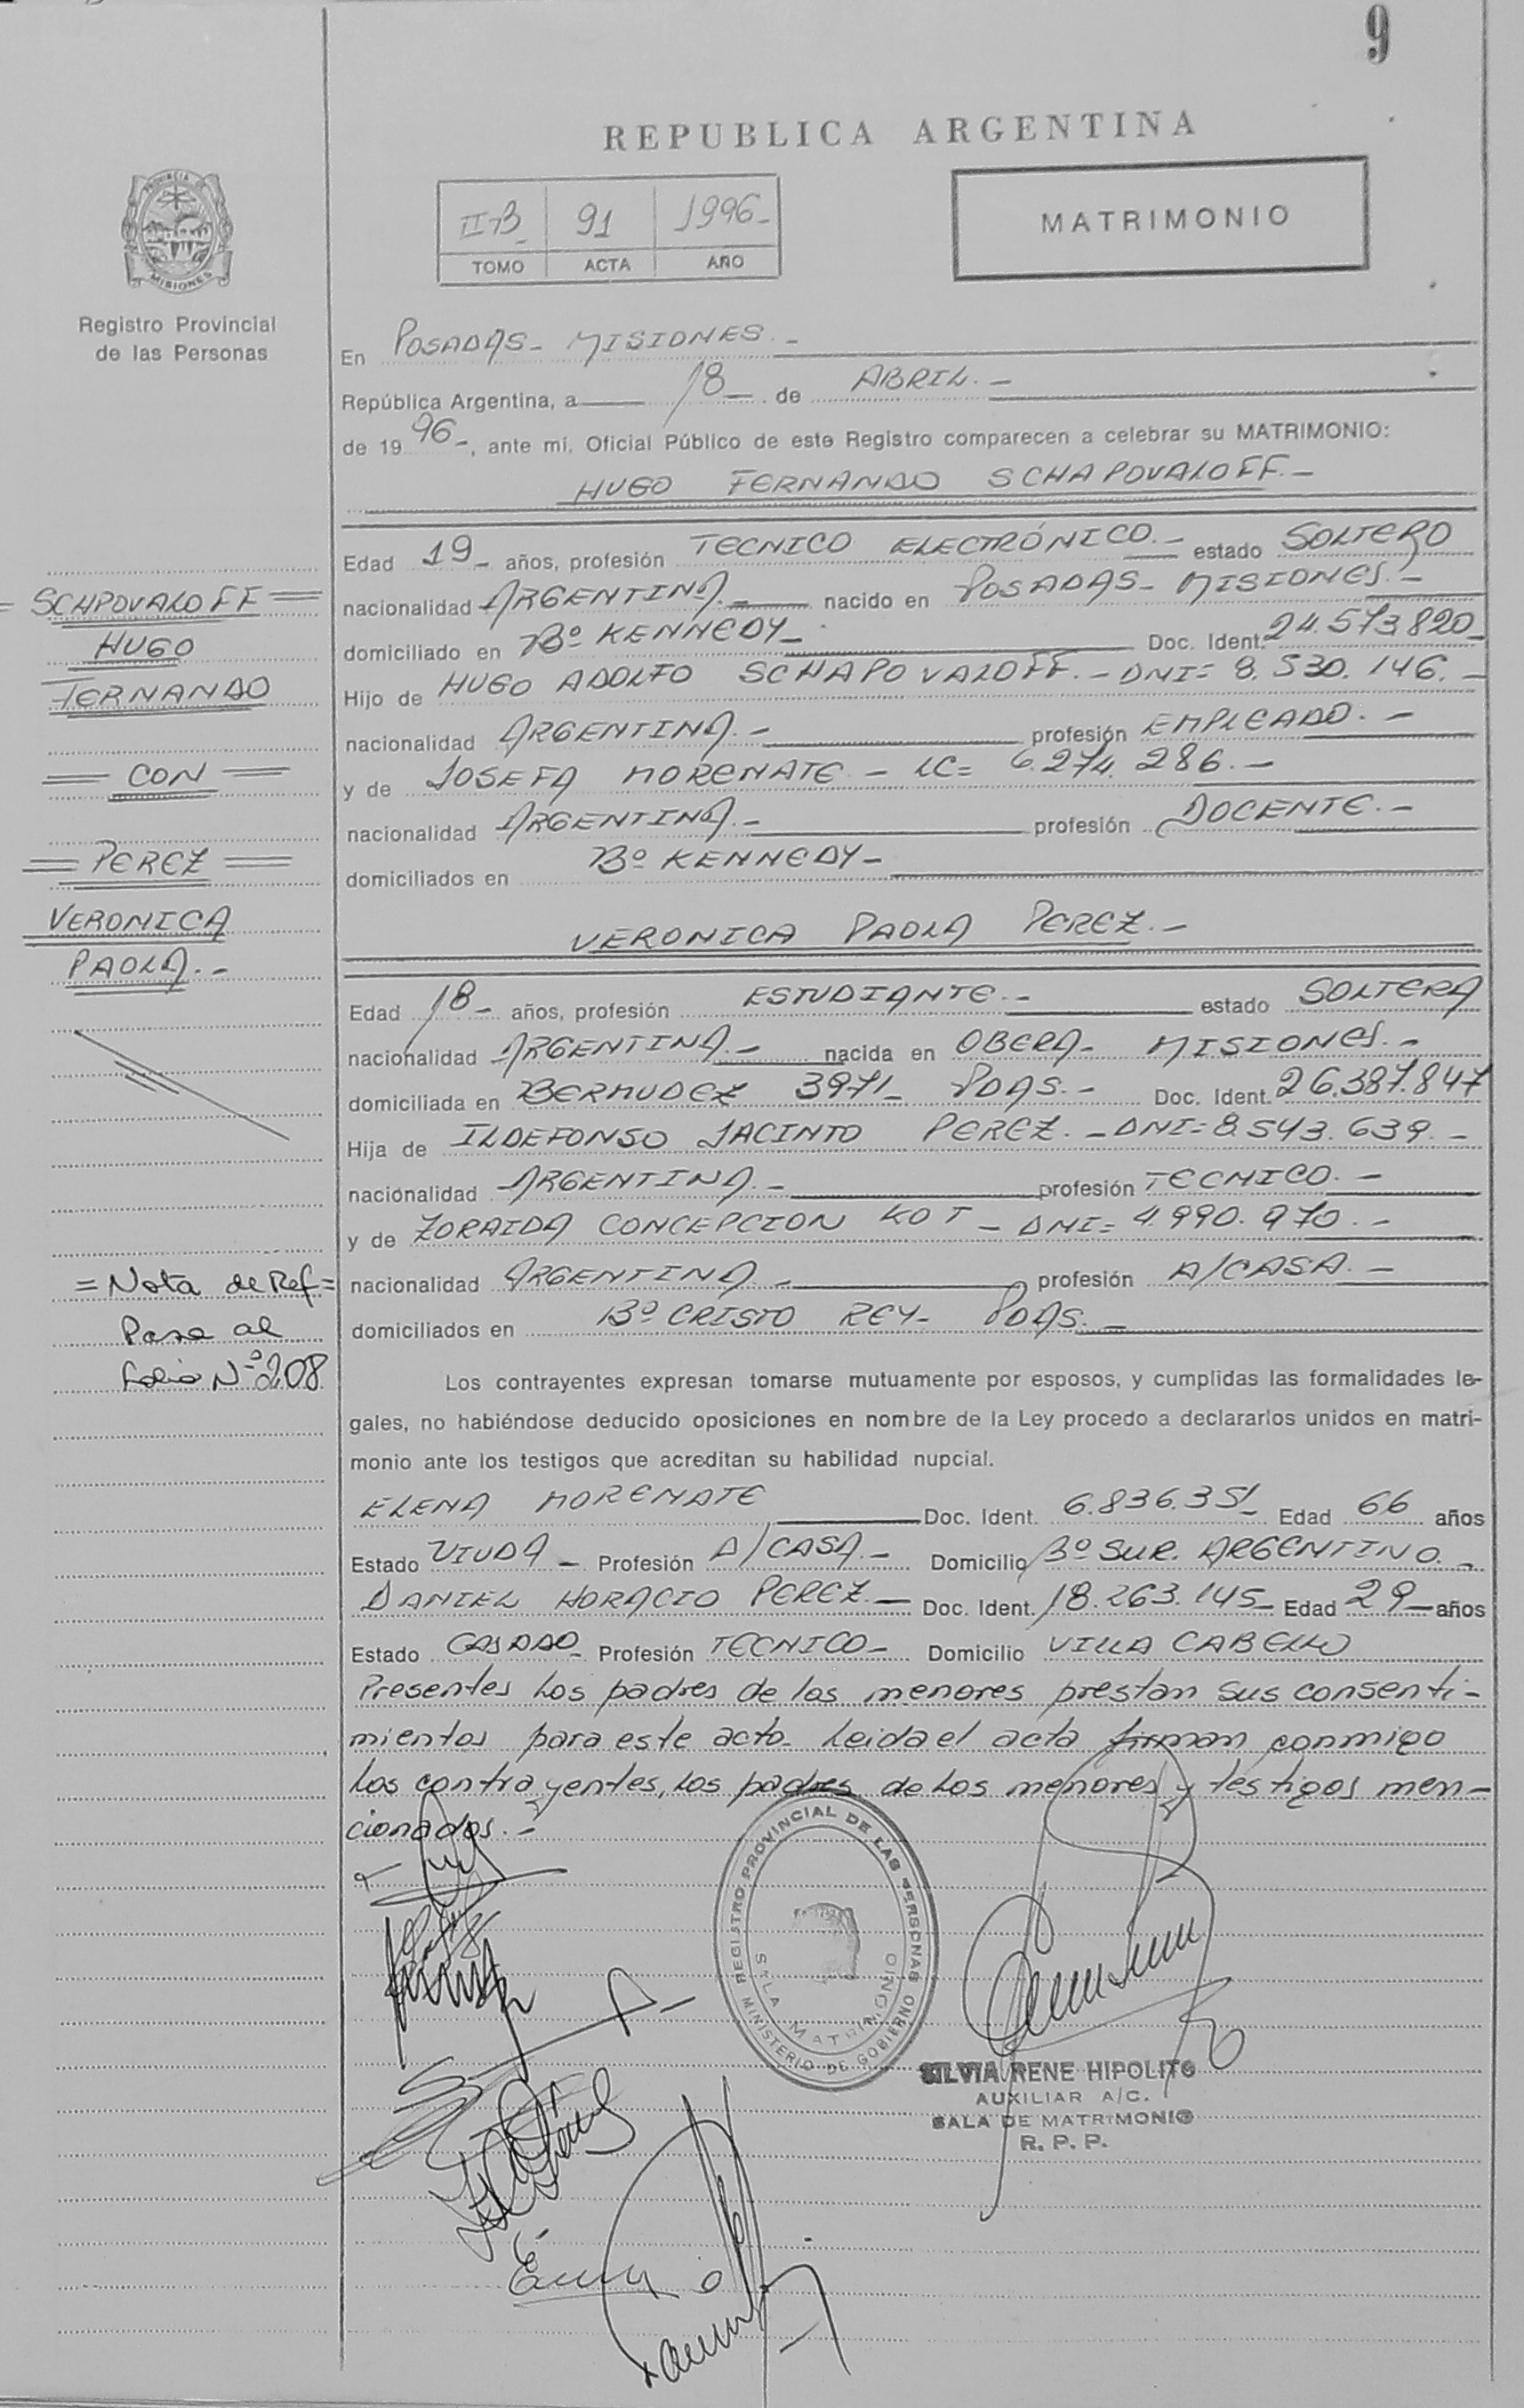 9
REPUBLICA ARGENTINA
PROVINCIA DE
MISIONES
II-B 91 1996-
TOMO ACTA AÑO
MATRIMONIO
Registro Provincial
de las Personas
En POSADAS - MISIONES.-
República Argentina, a 18- de ABRIL.-
de 1996-, ante mí, Oficial Público de este Registro comparecen a celebrar su MATRIMONIO:
HUGO FERNANDO SCHAPOVALOFF.-
Edad 19- años, profesión TECNICO ELECTRÓNICO.- estado SOLTERO
nacionalidad ARGENTINA.- nacido en POSADAS- MISIONES.-
domiciliado en Bº KENNEDY- Doc. Ident. 24.573.820-
Hijo de HUGO ADOLFO SCHAPOVALOFF.- DNI= 8.530.146.-
nacionalidad ARGENTINA.- profesión EMPLEADO.-
y de JOSEFA MORENATE - LC= 6.274.286.-
nacionalidad ARGENTINA.- profesión DOCENTE.-
domiciliados en Bº KENNEDY-
VERONICA PAOLA PEREZ.-
Edad 18- años, profesión ESTUDIANTE.- estado SOLTERA
nacionalidad ARGENTINA.- nacida en OBERA- MISIONES.-
domiciliada en BERMUDEZ 3971- PDAS.- Doc. Ident. 26.387.847
Hija de ILDEFONSO JACINTO PEREZ.- DNI= 8.543.639.-
nacionalidad ARGENTINA.- profesión TECNICO.-
y de ZORAIDA CONCEPCION KOT - DNI= 4.990.970.-
nacionalidad ARGENTINA.- profesión A/CASA.-
domiciliados en Bº CRISTO REY- PDAS.-
Los contrayentes expresan tomarse mutuamente por esposos, y cumplidas las formalidades le-
gales, no habiéndose deducido oposiciones en nombre de la Ley procedo a declararlos unidos en matri-
monio ante los testigos que acreditan su habilidad nupcial.
ELENA MORENATE Doc. Ident. 6.836.351- Edad 66 años
Estado VIUDA- Profesión A/CASA.- Domicilio Bº SUR. ARGENTINO.-
DANIEL HORACIO PEREZ.- Doc. Ident. 18.263.145- Edad 29- años
Estado CASADO- Profesión TECNICO- Domicilio VILLA CABELLO
Presentes los padres de los menores prestan sus consenti-
mientos para este acto- Leida el acta firman conmigo
los contrayentes, los padres de los menores y testigos men-
cionados.-
SCHPOVALOFF
HUGO
FERNANDO
CON
PEREZ
VERONICA
PAOLA.-
=Nota de Ref=
Pasa al
folio Nº 208
REGISTRO PROVINCIAL DE LAS PERSONAS
SALA MATRIMONIO
MINISTERIO DE GOBIERNO
SILVIA RENE HIPOLITO
AUXILIAR A/C.
SALA DE MATRIMONIO
R. P. P.